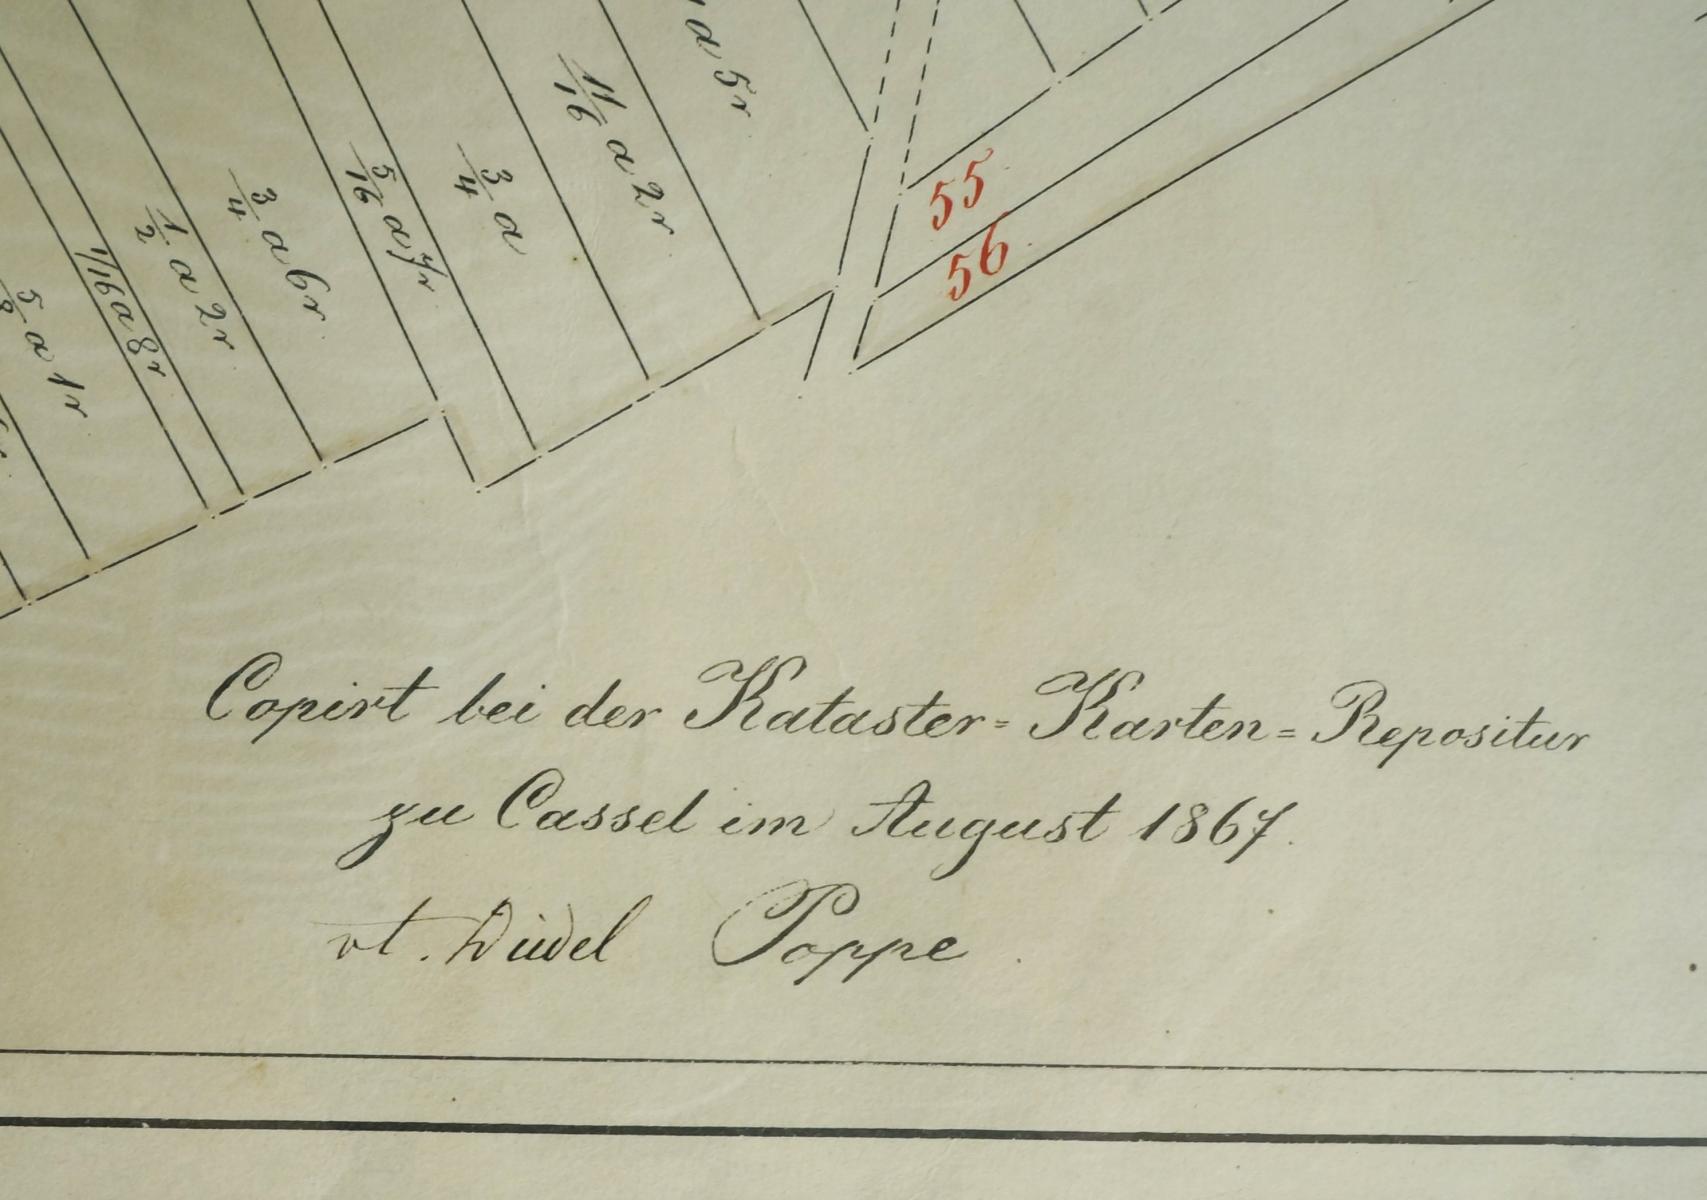 a 5r
11/16 a 2r
3/4 a
5/16 a 7r
3/4 a 6r
1/2 a 2r
1/16 a 8r
5/8 a 1r
55
56
Copirt bei der Kataster=Karten=Repositur
zu Cassel im August 1867.
vt. Poppe